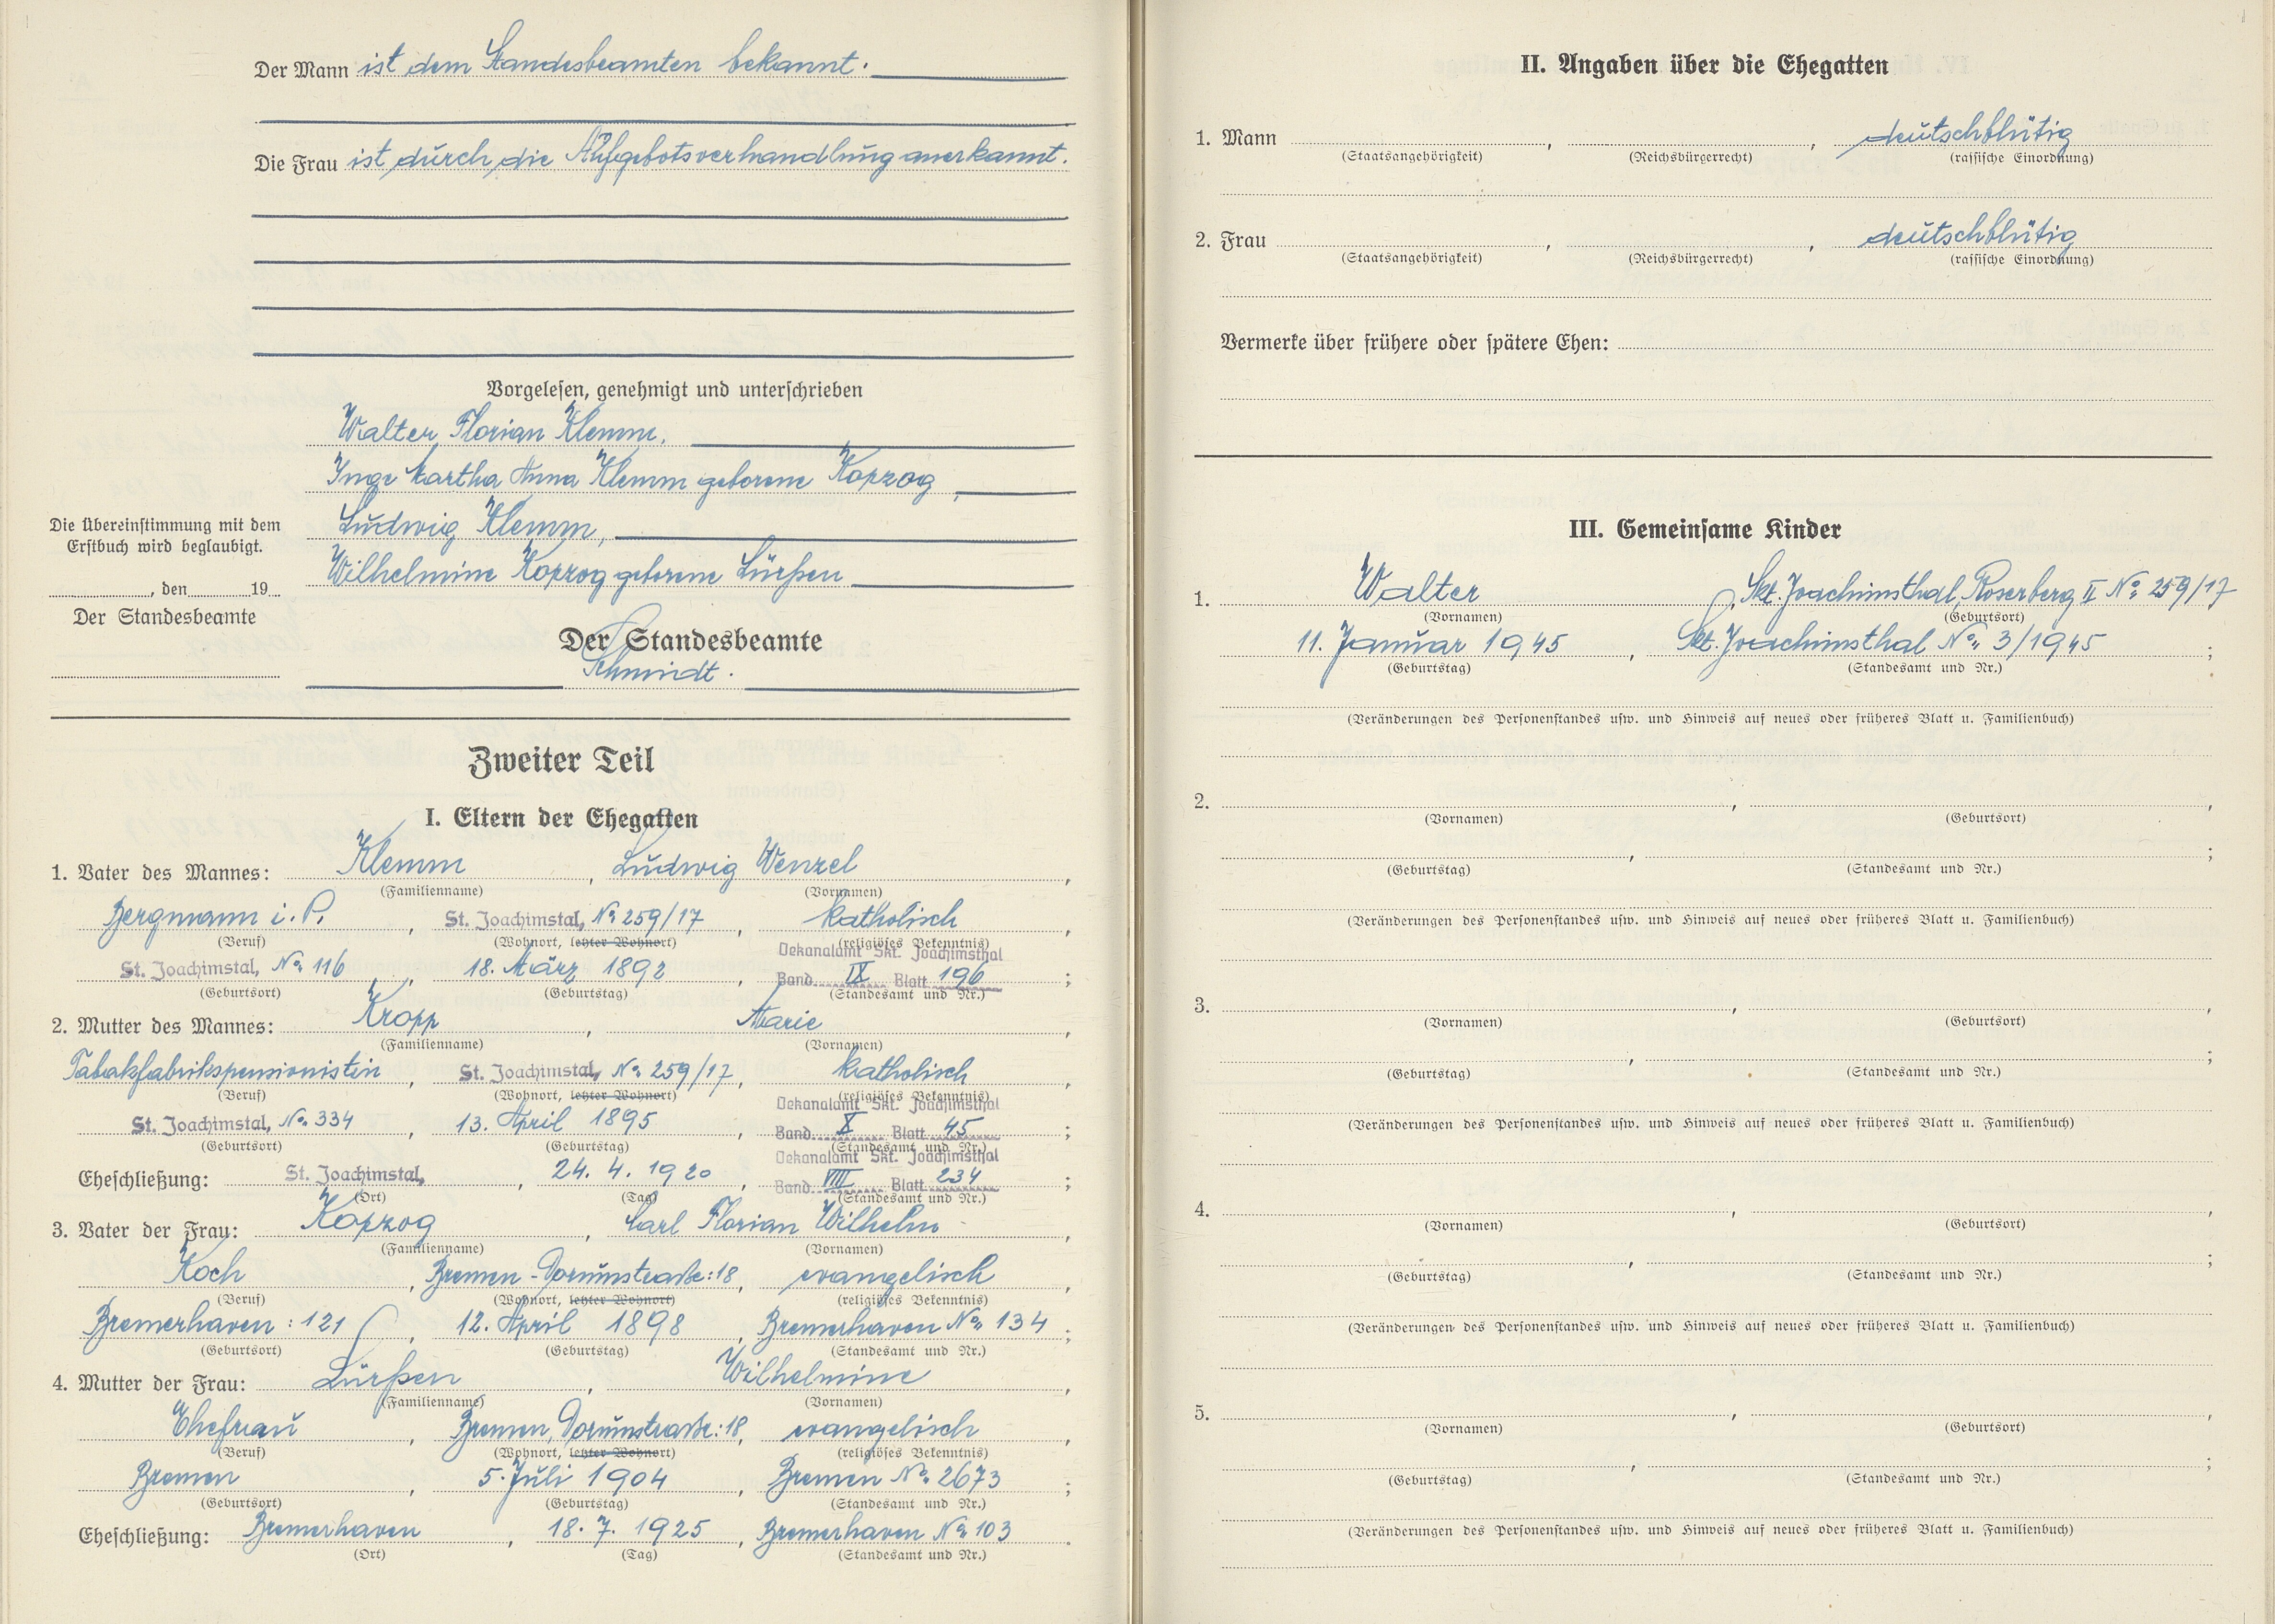 Der Mann ist dem Standesbeamten bekannt.
Die Frau ist durch die Aufgebotsverhandlung anerkannt.
Vorgelesen, genehmigt und unterschrieben
Walter Florian Klemm,
Inge Martha Anna Klemm geborene Kopzog,
Ludwig Klemm,
Wilhelmine Kopzog geborene Lürßen
Die Übereinstimmung mit dem
Erstbuch wird beglaubigt.
, den 19
Der Standesbeamte
Der Standesbeamte
Schmidt.
Zweiter Teil
I. Eltern der Ehegatten
1. Vater des Mannes: Klemm, Ludwig Wenzel,
(Familienname) (Vornamen)
Bergmann i. P., St. Joachimstal, No 259/17, katholisch,
(Beruf) (Wohnort, letzter Wohnort) (religiöses Bekenntnis)
Dekanalamt Skt. Joachimsthal
St. Joachimstal, No. 116, 18. März 1892, Band IX Blatt 196;
(Geburtsort) (Geburtstag) (Standesamt und Nr.)
2. Mutter des Mannes: Kropp, Marie,
(Familienname) (Vornamen)
Tabakfabrikspensionistin, St. Joachimstal, No 259/17, katholisch,
(Beruf) (Wohnort, letzter Wohnort) (religiöses Bekenntnis)
Dekanalamt Skt. Joachimsthal
St. Joachimstal, No. 334, 13. April 1895, Band X Blatt 45;
(Geburtsort) (Geburtstag) (Standesamt und Nr.)
Dekanalamt Skt. Joachimsthal
Eheschließung: St. Joachimstal, 24. 4. 1920, Band VIII Blatt 234;
(Ort) (Tag) (Standesamt und Nr.)
3. Vater der Frau: Kopzog, Carl Florian Wilhelm,
(Familienname) (Vornamen)
Koch, Bremen-Dorumstraße:18, evangelisch,
(Beruf) (Wohnort, letzter Wohnort) (religiöses Bekenntnis)
Bremerhaven: 121, 12. April 1898, Bremerhaven No. 134;
(Geburtsort) (Geburtstag) (Standesamt und Nr.)
4. Mutter der Frau: Lürßen, Wilhelmine,
(Familienname) (Vornamen)
Ehefrau, Bremen, Dorumstraße:18, evangelisch,
(Beruf) (Wohnort, letzter Wohnort) (religiöses Bekenntnis)
Bremen, 5. Juli 1904, Bremen No. 2673;
(Geburtsort) (Geburtstag) (Standesamt und Nr.)
Eheschließung: Bremerhaven, 18. 7. 1925, Bremerhaven No 103.
(Ort) (Tag) (Standesamt und Nr.)
II. Angaben über die Ehegatten
1. Mann , , deutschblütig
(Staatsangehörigkeit) (Reichsbürgerrecht) (rassische Einordnung)
2. Frau , , deutschblütig
(Staatsangehörigkeit) (Reichsbürgerrecht) (rassische Einordnung)
Vermerke über frühere oder spätere Ehen:
III. Gemeinsame Kinder
1. Walter, Skt. Joachimsthal, Roserberg II No. 259/17
(Vornamen) (Geburtsort)
11. Januar 1945, Skt. Joachimsthal No. 3/1945;
(Geburtstag) (Standesamt und Nr.)
(Veränderungen des Personenstandes usw. und Hinweis auf neues oder früheres Blatt u. Familienbuch)
2. , ,
(Vornamen) (Geburtsort)
, ;
(Geburtstag) (Standesamt und Nr.)
(Veränderungen des Personenstandes usw. und Hinweis auf neues oder früheres Blatt u. Familienbuch)
3. , ,
(Vornamen) (Geburtsort)
, ;
(Geburtstag) (Standesamt und Nr.)
(Veränderungen des Personenstandes usw. und Hinweis auf neues oder früheres Blatt u. Familienbuch)
4. , ,
(Vornamen) (Geburtsort)
, ;
(Geburtstag) (Standesamt und Nr.)
(Veränderungen des Personenstandes usw. und Hinweis auf neues oder früheres Blatt u. Familienbuch)
5. , ,
(Vornamen) (Geburtsort)
, ;
(Geburtstag) (Standesamt und Nr.)
(Veränderungen des Personenstandes usw. und Hinweis auf neues oder früheres Blatt u. Familienbuch)